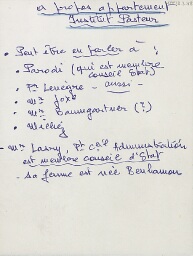 à propos appartement
Institut Pasteur
• Peut être en parler à :
• Parodi (qui est membre
conseil Etat)
• Pr Lenègre - aussi -
• Mr Joxe
• Mr Baumgartner (?)
•
• Mr Lasry, Pt Administration
est membre conseil d'Etat
- sa femme est née Benhamou